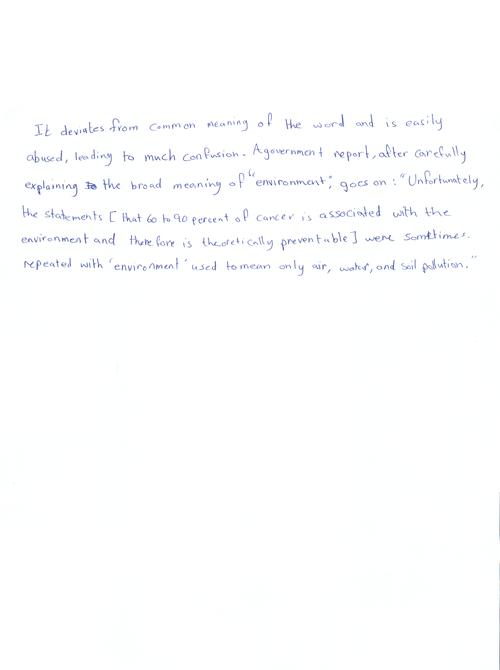 It deviates from common meaning of the word and is easily
abused, leading to much confusion. A government report, after carefully
explaining the broad meaning of "environment", goes on: "Unfortunately,
the statements [that 60 to 90 percent of cancer is associated with the
environment and therefore is theoretically preventable] were sometimes.
repeated with 'environment' used to mean only air, water, and soil pollution."